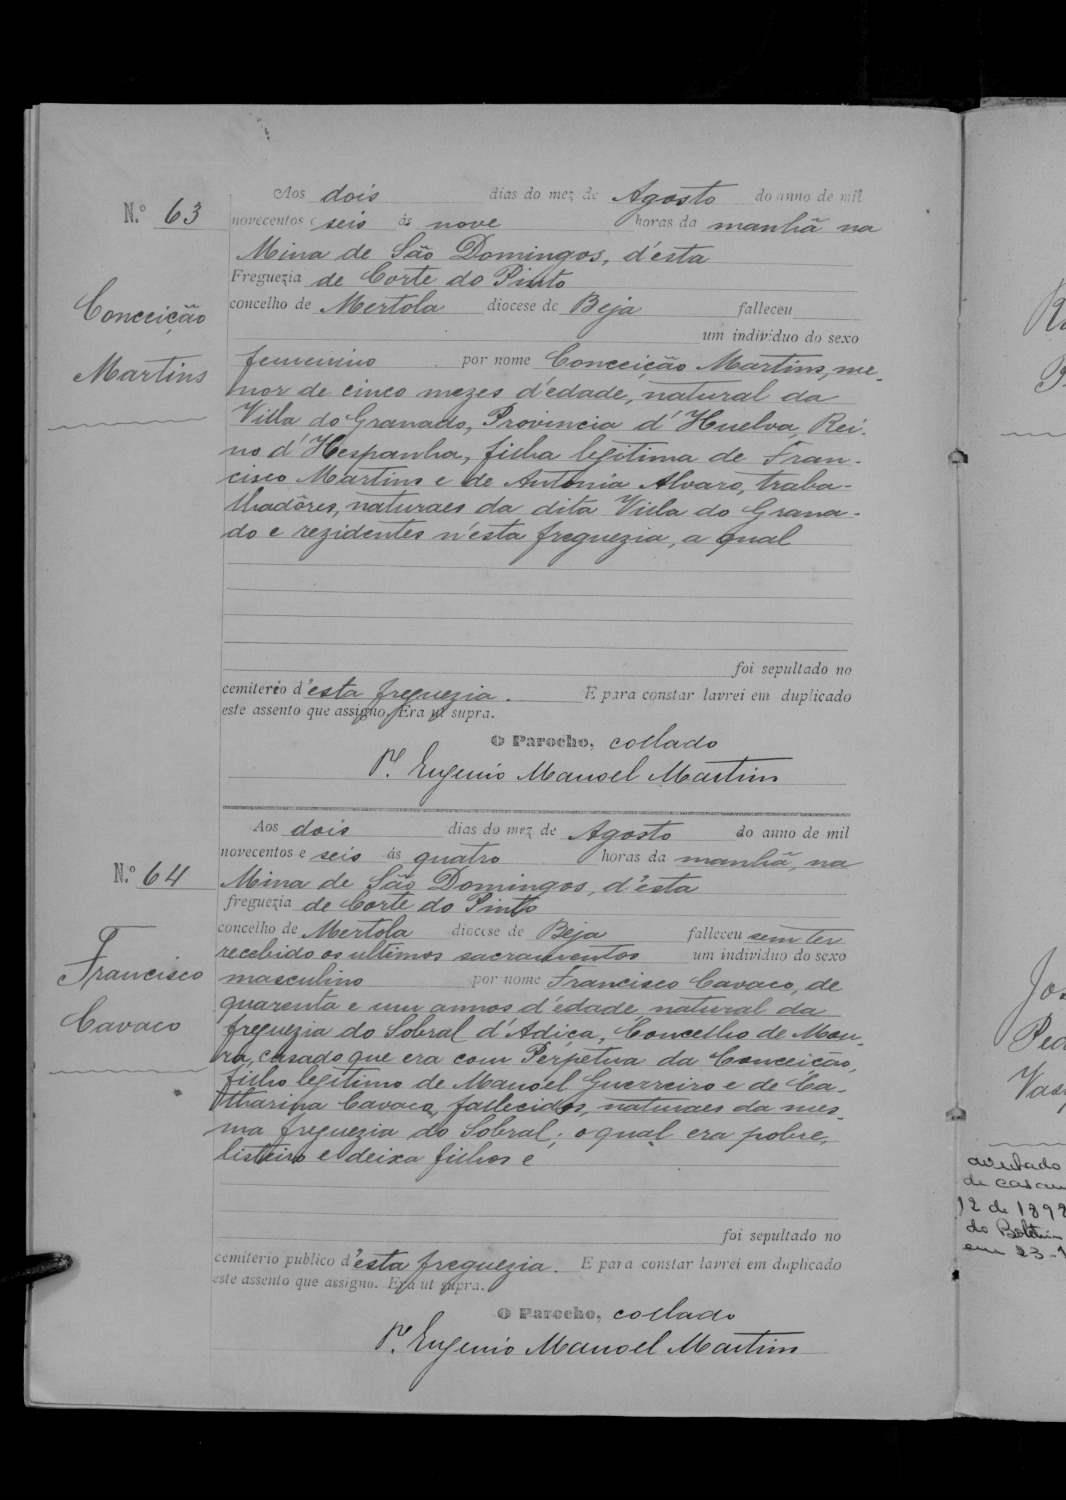 Aos dois dias do mez de Agosto do anno de mil
N.º 63
novecentos e seis ás nove horas da manhã na
Mina de São Domingos, d'ésta
Freguezia de Corte do Pinto
concelho de Mertola diocese de Beja falleceu
Conceição
um individuo do sexo
femenino por nome Conceição Martins, me-
Martins
nor de cinco mezes d'édade, natural da
Villa do Granado, Provincia d'Huelva, Rei-
no d'Hespanha, filha legitima de Fran-
cisco Martins e de Antonia Alvaro, traba-
lhadôres, naturaes da dita Villa do Grana-
do e rezidentes n'ésta freguezia, a qual
foi sepultado no
cemiterio d'ésta freguezia. E para constar lavrei em duplicado
este assento que assigno. Era ut supra.
O Parocho, collado
P.e Eugenio Manoel Martins
Aos dois dias do mez de Agosto do anno de mil
novecentos e seis ás quatro horas da manhã, na
N.º 64
Mina de São Domingos, d'ésta
freguezia de Corte do Pinto
concelho de Mertola diocese de Beja falleceu sem ter
recebido os ultimos sacramentos um individuo do sexo
Francisco
masculino por nome Francisco Cavaco, de
quarenta e um annos d'édade, natural da
Cavaco
freguezia do Sobral d'Adiça, Concelho de Mou-
ra, casado que era com Perpétua da Conceição,
filho legitimo de Manoel Guerreiro e de Ca-
tharina Cavaco, fallecidos, naturaes da mes-
ma freguezia do Sobral; o qual era pobre,
listeiro e deixa filhos e
foi sepultado no
cemiterio publico d'ésta freguezia. E para constar lavrei em duplicado
este assento que assigno. Era ut supra.
O Parocho, collado
P.e Eugenio Manoel Martins
12 de 189